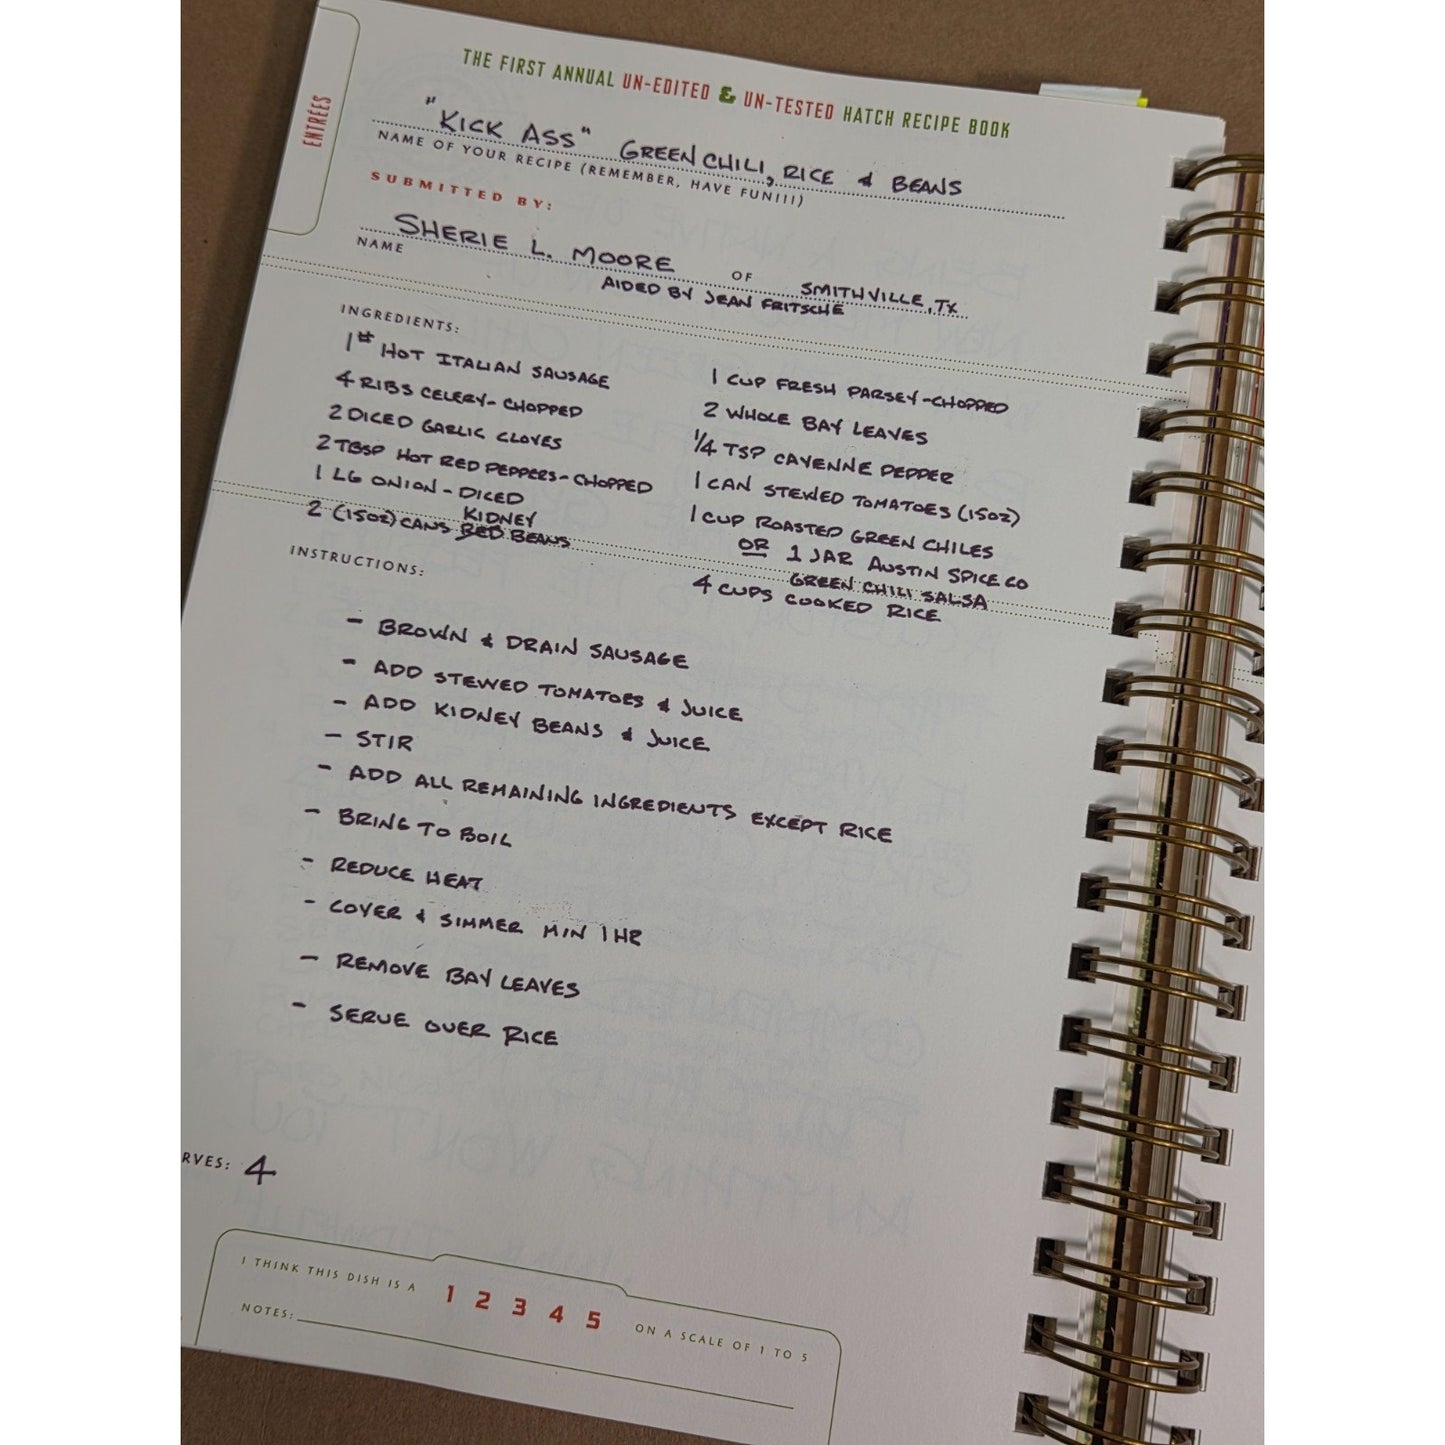 ENTRÉES
THE FIRST ANNUAL UN-EDITED & UN-TESTED HATCH RECIPE BOOK
"KICK ASS" GREEN CHILI, RICE & BEANS
NAME OF YOUR RECIPE (REMEMBER, HAVE FUN!!!)
SUBMITTED BY:
SHERIE L. MOORE OF SMITHVILLE, TX
NAME
AIDED BY JEAN FRITSCHE
INGREDIENTS:
1# HOT ITALIAN SAUSAGE
4 RIBS CELERY - CHOPPED
2 DICED GARLIC CLOVES
2 TBSP HOT RED PEPPERS - CHOPPED
1 LG ONION - DICED
KIDNEY
2 (15OZ) CANS RED BEANS
1 CUP FRESH PARSEY - CHOPPED
2 WHOLE BAY LEAVES
1/4 TSP CAYENNE PEPPER
1 CAN STEWED TOMATOES (15OZ)
1 CUP ROASTED GREEN CHILES
OR 1 JAR AUSTIN SPICE CO
GREEN CHILI SALSA
4 CUPS COOKED RICE
INSTRUCTIONS:
- BROWN & DRAIN SAUSAGE
- ADD STEWED TOMATOES & JUICE
- ADD KIDNEY BEANS & JUICE
- STIR
- ADD ALL REMAINING INGREDIENTS EXCEPT RICE
- BRING TO BOIL
- REDUCE HEAT
- COVER & SIMMER MIN 1 HR
- REMOVE BAY LEAVES
- SERVE OVER RICE
RVES: 4
I THINK THIS DISH IS A 1 2 3 4 5 ON A SCALE OF 1 TO 5
NOTES: